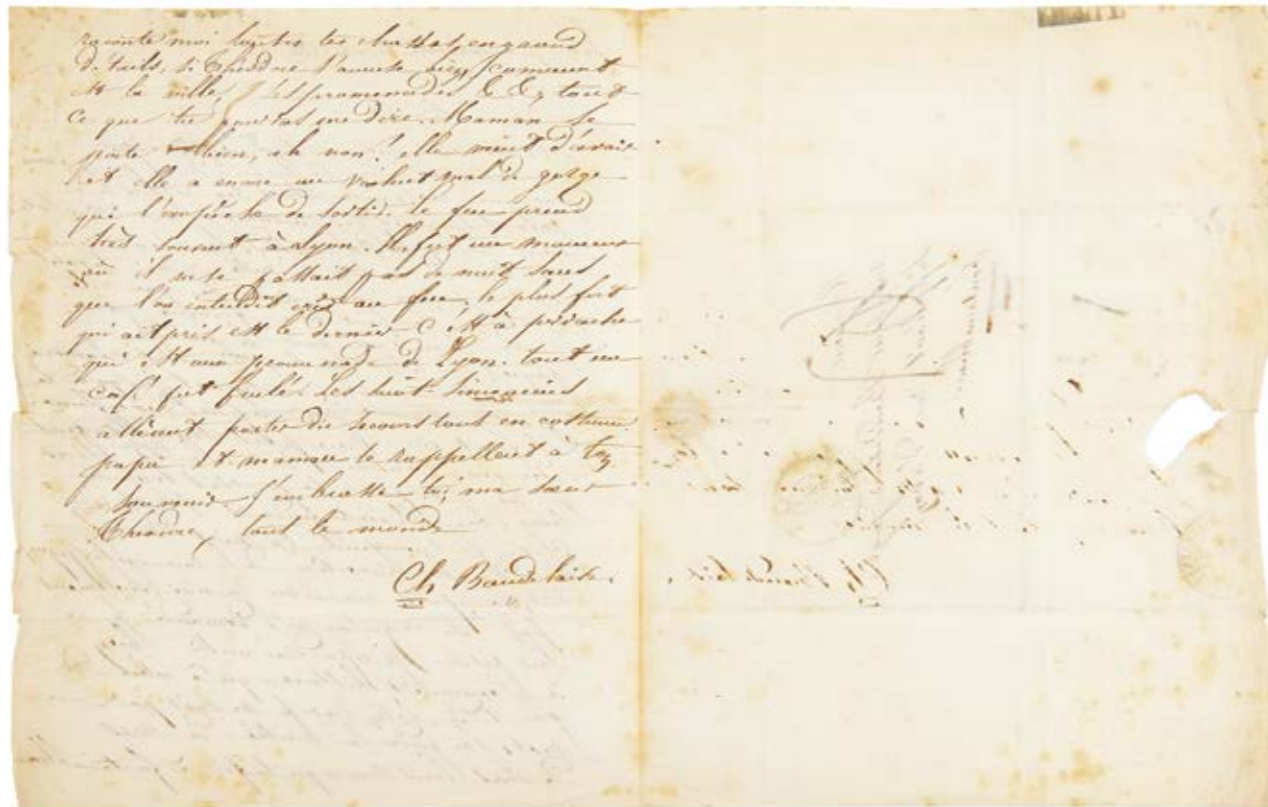 raconte moi toutes tes chasses, en grand
détails, si Théodore s'amuse bien, comment
est la ville, les promenades &&, tout
ce que tu pourras me dire. Maman se
porte bien, eh non! elle vient d'avoir
et elle a encore un violent mal de gorge
qui l'empêche de sortir. le feu prend
très souvent à Lyon. Il fut un moment
où il ne se passait pas de nuit sans
que l'on entendit crier au feu; le plus fort
qui ait pris est le dernier c'est à perrache
qui est une promenade de Lyon. tout un
café fut brulé. Les
allèrent porter du secours tous en costume
papa et maman se rappellent à ton
souvenir. J'embrasse toi, ma sœur
Théodore, tout le monde
Ch Baudelaire.